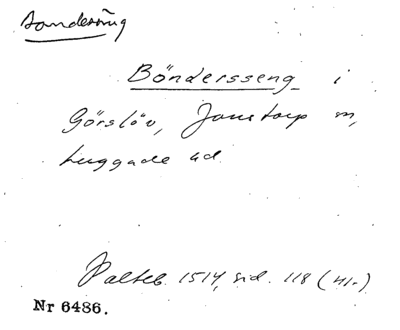 Sandesäng
Böndersseng i
Görslöv, Jonstorp sn,
huggade ad
Palteb. 1514, sid. 118 (41r)
Nr 6486.